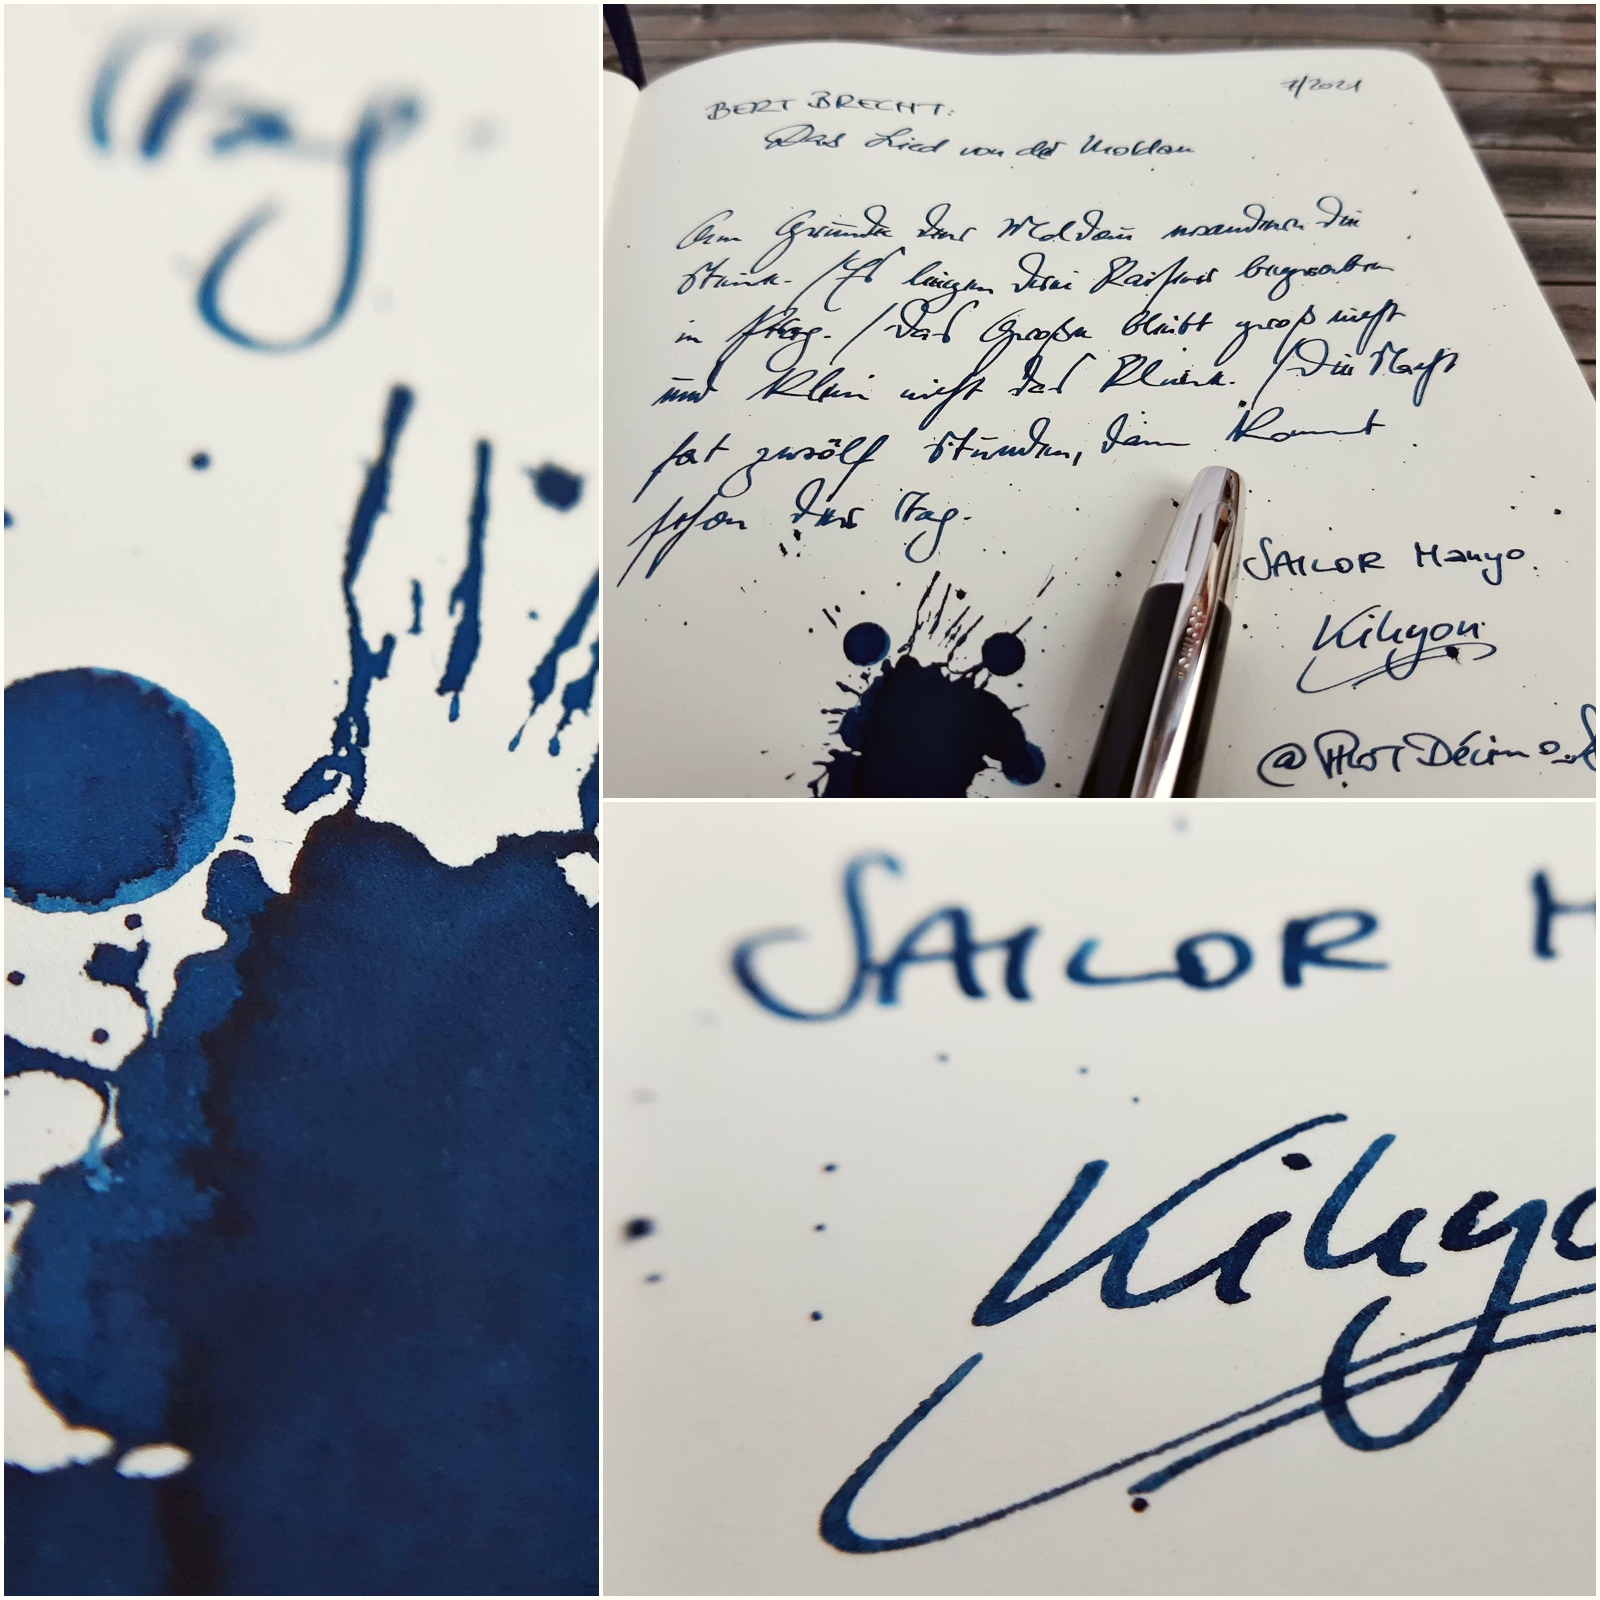 Tag.
BERT BRECHT:
7/2021
Das Lied von der Moldau
Am Grunde der Moldau wandern die
Steine. / Es liegen drei Kaiser begraben
in Prag. / Das Große bleibt groß nicht
und klein nicht das Kleine. / Die Nacht
hat zwölf Stunden, dann kommt
schon der Tag.
SAILOR Manyo
Kikyou
@PilotDécimo_
SAILOR M
Kikyo